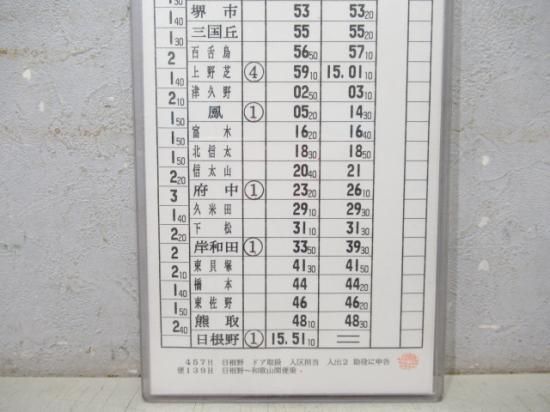 堺市 53 53 20
1 40 三国丘 55 55 20
1 30 百舌鳥 56 50 57 10
2 上野芝 ④ 59 10 15.01 10
1 40 津久野 02 50 03 10
2 10 鳳 ① 05 20 14 30
1 50 富木 16 20 16 40
1 50 北信太 18 30 18 50
1 50 信太山 20 40 21
2 20 府中 ① 23 20 26 10
3 久米田 29 10 29 30
1 40 下松 31 10 31 30
2 20 岸和田 ① 33 50 39 30
2 東貝塚 41 30 41 50
2 10 橋本 44 44 20
1 40 東佐野 46 46 20
1 50 熊取 48 10 48 30
2 40 日根野 ① 15.51 10
457H 日根野 ドア取扱 入区担当 入出2 助役に申告
便139H 日根野～和歌山間便乗